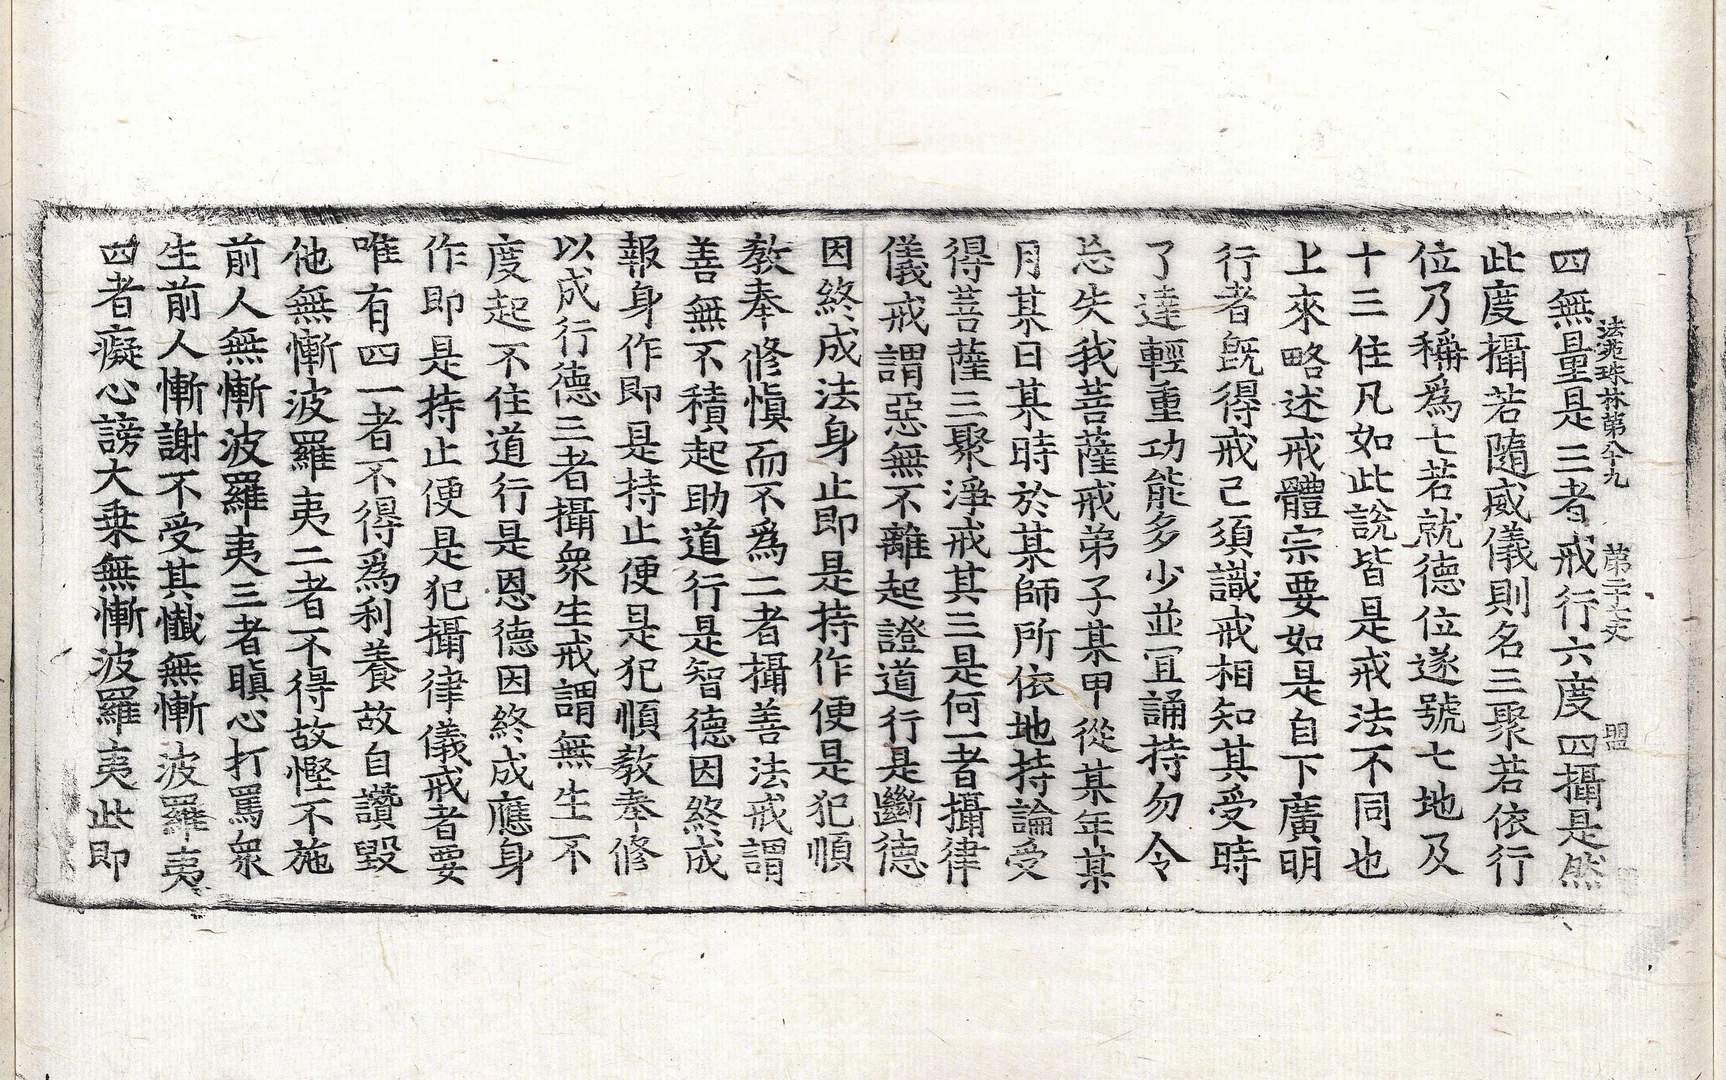 法苑珠林第八十九 第二十六張 盟
四無量是三者戒行六度四攝是然
此度攝若隨威儀則名三聚若依行
位乃稱爲七若就德位遂號七地及
十三住凡如此說皆是戒法不同也
上來略述戒體宗要如是自下廣明
行者旣得戒已須識戒相知其受時
了達輕重功能多少並宜誦持勿令
忘失我菩薩戒弟子某甲從某年某
月某日某時於某師所依地持論受
得菩薩三聚淨戒其三是何一者攝律
儀戒謂惡無不離起證道行是斷德
因終成法身止即是持作便是犯順
教奉修愼而不爲二者攝善法戒謂
善無不積起助道行是智德因終成
報身作即是持止便是犯順教奉修
以成行德三者攝衆生戒謂無生不
度起不住道行是恩德因終成應身
作即是持止便是犯攝律儀戒者要
唯有四一者不得爲利養故自讚毀
他無慚波羅夷二者不得故慳不施
前人無慚波羅夷三者瞋心打罵衆
生前人慚謝不受其懺無慚波羅夷
四者癡心謗大乗無慚波羅夷此即